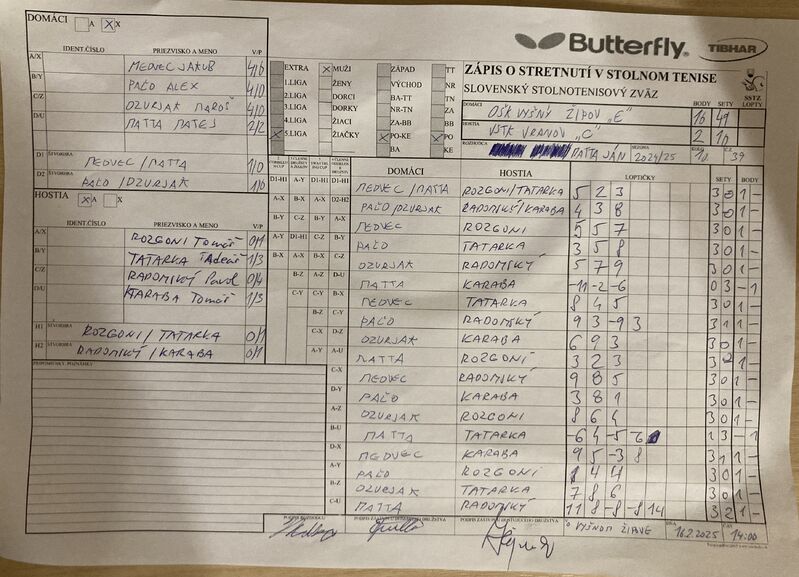 DOMÁCI A X
Butterfly® TIBHAR
IDENT.ČÍSLO PRIEZVISKO A MENO V/P
A/X MEDVEC JAKUB 4/0
B/Y PAĽO ALEX 4/0
C/Z DZURJAK MAROŠ 4/0
D/U MATTA MATEJ 2/2
D1 ŠTVORHRA MEDVEC/MATTA 1/0
D2 ŠTVORHRA PAĽO/DZURJAK 1/0
EXTRA MUŽI ZÁPAD TT
1.LIGA ŽENY VÝCHOD NR
2.LIGA DORCI BA-TT TN
3.LIGA DORKY NR-TN ZA
4.LIGA ŽIACI ZA-BB BB
5.LIGA ŽIAČKY PO-KE PO
BA KE
ZÁPIS O STRETNUTÍ V STOLNOM TENISE
SLOVENSKÝ STOLNOTENISOVÝ ZVÄZ
SSTZ
BODY SETY LOPTY
DOMÁCI OŠK VYŠNÝ ŽIPOV „E" 16 49
HOSTIA VSTK VRANOV „C" 2 10
ROZHODCA MATTA JÁN SEZÓNA 2024/25 KOLO 10 39
HOSTIA A X
IDENT.ČÍSLO PRIEZVISKO A MENO V/P
A/X ROZGONI Tomáš
B/Y TATARKA 1/3
C/Z RADOMSKÝ Pavol 0/4
D/U KARABA Tomáš 1/3
H1 ŠTVORHRA ROZGONI/TATARKA 0/1
H2 ŠTVORHRA RADOMSKÝ/KARABA 0/1
PRIPOMIENKY, POZNÁMKY
DOMÁCI HOSTIA LOPTIČKY SETY BODY
D1-H1 MEDVEC/MATTA ROZGONI/TATARKA 5 2 3 3 0 1 -
D2-H2 PAĽO/DZURJAK RADOMSKÝ/KARABA 4 3 8 3 0 1 -
A-X MEDVEC ROZGONI 5 5 7 3 0 1 -
B-Y PAĽO TATARKA 3 5 8 3 0 1 -
C-Z DZURJAK RADOMSKÝ 5 7 9 3 0 1 -
D-U MATTA KARABA -11 -2 -6 0 3 - 1
MEDVEC TATARKA 8 4 5 3 0 1 -
PAĽO RADOMSKÝ 9 3 -9 3 3 1 1 -
DZURJAK KARABA 6 9 3 3 0 1 -
MATTA ROZGONI 3 2 3 3 1 -
C-X MEDVEC RADOMSKÝ 9 8 5 3 0 1 -
D-Y PAĽO KARABA 3 8 1 3 0 1 -
A-Z DZURJAK ROZGONI 8 6 4 3 0 1 -
B-U MATTA TATARKA -6 4 -5 1 3 - 1
D-X MEDVEC KARABA 9 5 -3 8 3 1 1 -
A-Y PAĽO ROZGONI 4 4 3 0 1 -
B-Z DZURJAK TATARKA 7 8 6 3 0 1 -
C-U MATTA RADOMSKÝ 11 8 -8 -8 14 3 2 1 -
PODPIS ROZHODCU PODPIS ZÁSTUPCU DOMÁCEHO DRUŽSTVA PODPIS ZÁSTUPCU HOSŤUJÚCEHO DRUŽSTVA
VYŠNOM ŽIPOVE 16.2.2025 14:00